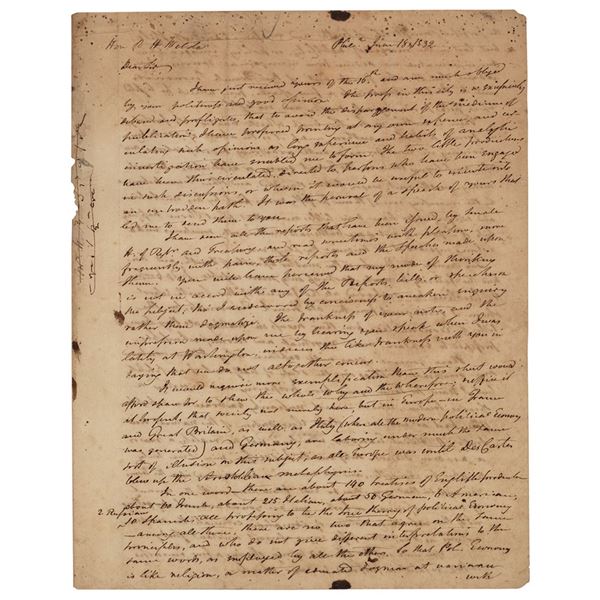 Hon R H Wilde Phila June 18, 1832
Dear Sir
I have just received yours of the 16th and am much obliged
by your politeness and good opinion. The press in this city is so excessively
debased and profligate, that to avoid the disparagement of the medium of
publication, I have proposed printing at my own expense, and cir
culating such opinions as long experience and habits of analytic
investigation have enabled me to form. The two little productions
have been thus circulated, directed to persons who have been engaged
in such discussions, or whom it would be useful to invite into
an untrodden path. It was the perusal of a speech of yours that
led me to send them to you.
I have seen all the reports that have been issued, by Senate
H. of Repr and Treasury, and read sometimes with pleasure, more
frequently with pain, those reports and the speeches made upon
them. You will have perceived that my mode of thinking
is not in accord with any of the Reports, bills, or speeches
on the subject, tho' I endeavoured by conciseness to awaken enquiry
rather than dogmatize. The frankness of your note, and the
impression made upon me by hearing you speak when I was
lately at Washington, induces the like frankness with you in
saying that we do not altogether concur.
It would require more exemplification than this sheet would
afford space for, to shew the whole why and the wherefore; suffice it
at present, that society not merely here but in Europe—in France
and Great Britain, as well as Italy (where all the modern political Economy
was generated) and Germany, are laboring under much the same
sort of illusion on this subject, as all Europe was until DesCartes
blew up the Aristotelian metaphysics.
In one word—there are about 140 treatises of English production
about 60 French, about 215 Italian, about 50 German, 6 American,
2 Russian
10 Spanish, all professing to be the true theory of political Economy
—among all these, there are no two that agree on the same
principles, and who do not give different interpretations to the
same words, as employed by all the others. So that Pol. Economy
is like religion, a matter of dogmas at variance
with